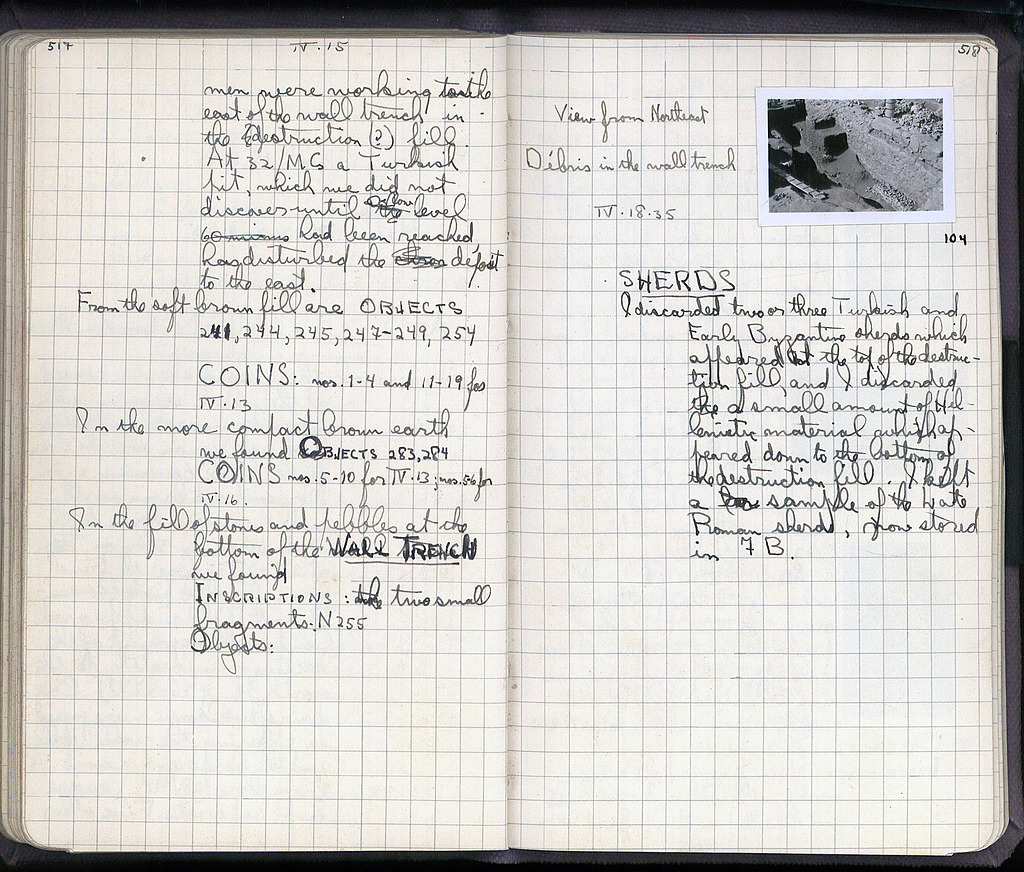 517
IV·15
men were working to the
east of the wall trench in
the destruction (?) fill.
At 32/MG a Turkish
pit, which we did not
discover until below level
60 minus had been reached,
has disturbed the deposit
to the east.
From the soft brown fill are OBJECTS
241, 244, 245, 247-249, 254
COINS: nos. 1-4 and 11-19 for
IV·13
In the more compact brown earth
we found OBJECTS 283, 284
COINS nos. 5-10 for IV·13; nos. 56 for
IV·16.
In the fill of stones and pebbles at the
bottom of the WALL TRENCH
we found
INSCRIPTIONS: two small
fragments. N 255
Objects:
518
View from Northeast
Débris in the wall trench
IV·18·35
104
SHERDS
I discarded two or three Turkish and
Early Byzantine sherds which
appeared at the top of the destruc-
tion fill, and I discarded
a small amount of Hel-
lenistic material which ap-
peared down to the bottom of
the destruction fill. I kept
a sample of the Late
Roman sherds, now stored
in 7 B.